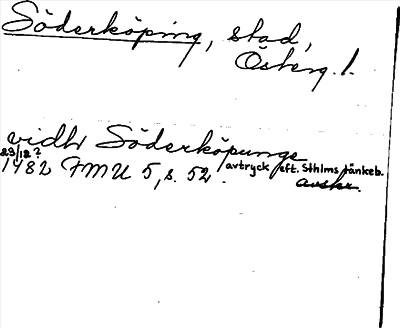 Söderköping, stad,
Österg. l.
vidh Söderköpunge
23/12?
1482 FMU 5, s. 52. avtryck eft. Sthlms tänkeb.
avskr.